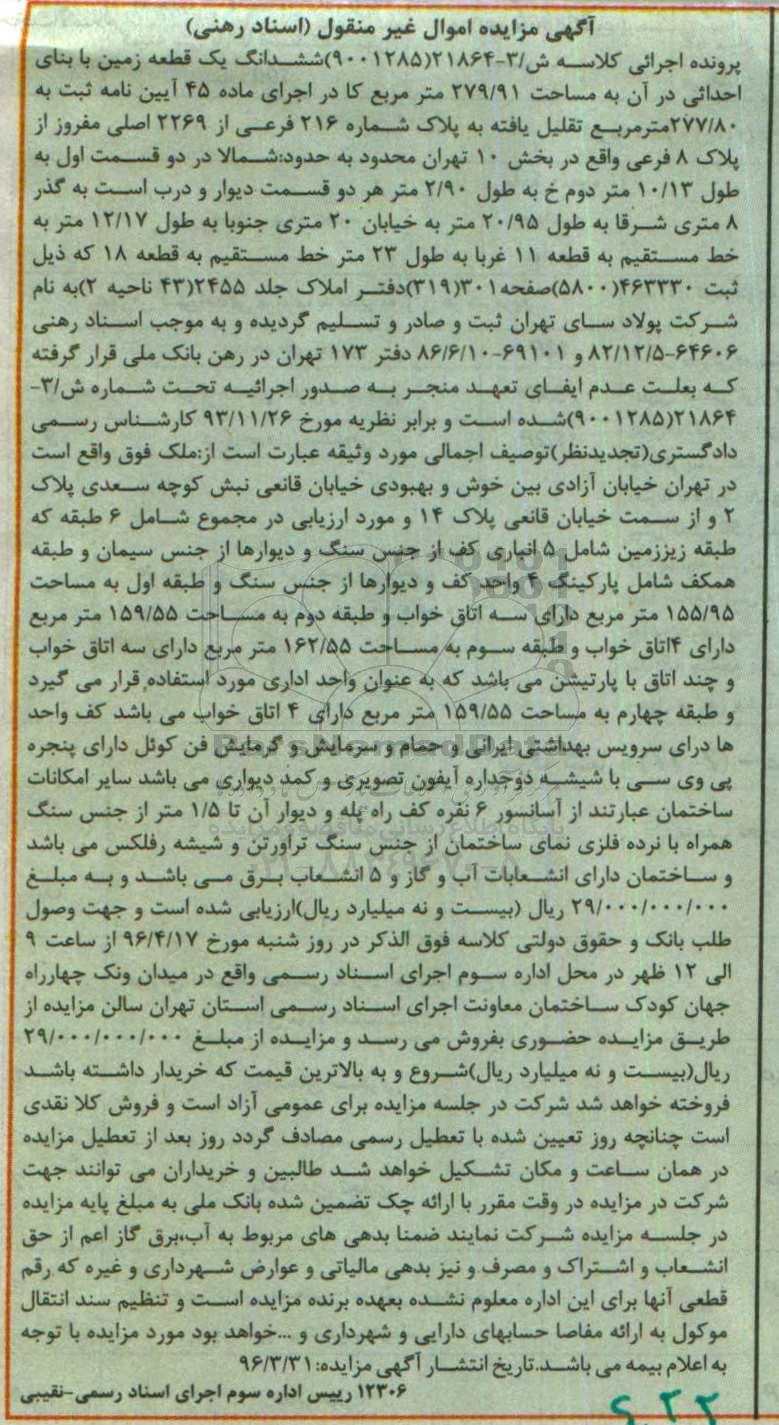 آگهی مزایده اموال غیر منقول (اسناد رهنی)
پرونده اجرائی کلاسه ش/۳-۲۱۸۶۴(۹۰۰۱۲۸۵)ششدانگ یک قطعه زمین با بنای
احداثی در آن به مساحت ۲۷۹/۹۱ متر مربع کا در اجرای ماده ۴۵ آیین نامه ثبت به
۲۷۷/۸۰مترمربع تقلیل یافته به پلاک شماره ۲۱۶ فرعی از ۲۲۶۹ اصلی مفروز از
پلاک ۸ فرعی واقع در بخش ۱۰ تهران محدود به حدود:شمالا در دو قسمت اول به
طول ۱۰/۱۳ متر دوم خ به طول ۲/۹۰ متر هر دو قسمت دیوار و درب است به گذر
۸ متری شرقا به طول ۲۰/۹۵ متر به خیابان ۲۰ متری جنوبا به طول ۱۲/۱۷ متر به
خط مستقیم به قطعه ۱۱ غربا به طول ۲۳ متر خط مستقیم به قطعه ۱۸ که ذیل
ثبت ۴۶۳۳۳۰(۵۸۰۰)صفحه۳۰۱(۳۱۹)دفتر املاک جلد ۲۴۵۵(۴۳ ناحیه ۲)به نام
شرکت پولاد سای تهران ثبت و صادر و تسلیم گردیده و به موجب اسناد رهنی
۶۴۶۰۶-۸۲/۱۲/۵ و ۶۹۱۰۱-۸۶/۶/۱۰ دفتر ۱۷۳ تهران در رهن بانک ملی قرار گرفته
که بعلت عدم ایفای تعهد منجر به صدور اجرائیه تحت شماره ش/۳-
۲۱۸۶۴(۹۰۰۱۲۸۵)شده است و برابر نظریه مورخ ۹۳/۱۱/۲۶ کارشناس رسمی
دادگستری(تجدیدنظر)توصیف اجمالی مورد وثیقه عبارت است از:ملک فوق واقع است
در تهران خیابان آزادی بین خوش و بهبودی خیابان قانعی نبش کوچه سعدی پلاک
۲ و از سمت خیابان قانعی پلاک ۱۴ و مورد ارزیابی در مجموع شامل ۶ طبقه که
طبقه زیززمین شامل ۵ انباری کف از جنس سنگ و دیوارها از جنس سیمان و طبقه
همکف شامل پارکینگ ۴ واحد کف و دیوارها از جنس سنگ و طبقه اول به مساحت
۱۵۵/۹۵ متر مربع دارای سه اتاق خواب و طبقه دوم به مساحت ۱۵۹/۵۵ متر مربع
دارای ۴اتاق خواب و طبقه سوم به مساحت ۱۶۲/۵۵ متر مربع دارای سه اتاق خواب
و چند اتاق با پارتیشن می باشد که به عنوان واحد اداری مورد استفاده قرار می گیرد
و طبقه چهارم به مساحت ۱۵۹/۵۵ متر مربع دارای ۴ اتاق خواب می باشد کف واحد
ها درای سرویس بهداشتی ایرانی و حمام و سرمایش و گرمایش فن کوئل دارای پنجره
پی وی سی با شیشه دوجداره آیفون تصویری و کمد دیواری می باشد سایر امکانات
ساختمان عبارتند از آسانسور ۶ نفره کف راه پله و دیوار آن تا ۱/۵ متر از جنس سنگ
همراه با نرده فلزی نمای ساختمان از جنس سنگ تراورتن و شیشه رفلکس می باشد
و ساختمان دارای انشعابات آب و گاز و ۵ انشعاب برق می باشد و به مبلغ
۲۹/۰۰۰/۰۰۰/۰۰۰ ریال (بیست و نه میلیارد ریال)ارزیابی شده است و جهت وصول
طلب بانک و حقوق دولتی کلاسه فوق الذکر در روز شنبه مورخ ۹۶/۴/۱۷ از ساعت ۹
الی ۱۲ ظهر در محل اداره سوم اجرای اسناد رسمی واقع در میدان ونک چهارراه
جهان کودک ساختمان معاونت اجرای اسناد رسمی استان تهران سالن مزایده از
طریق مزایده حضوری بفروش می رسد و مزایده از مبلغ ۲۹/۰۰۰/۰۰۰/۰۰۰
ریال(بیست و نه میلیارد ریال)شروع و به بالاترین قیمت که خریدار داشته باشد
فروخته خواهد شد شرکت در جلسه مزایده برای عمومی آزاد است و فروش کلا نقدی
است چنانچه روز تعیین شده با تعطیل رسمی مصادف گردد روز بعد از تعطیل مزایده
در همان ساعت و مکان تشکیل خواهد شد طالبین و خریداران می توانند جهت
شرکت در مزایده در وقت مقرر با ارائه چک تضمین شده بانک ملی به مبلغ پایه مزایده
در جلسه مزایده شرکت نمایند ضمنا بدهی های مربوط به آب،برق گاز اعم از حق
انشعاب و اشتراک و مصرف و نیز بدهی مالیاتی و عوارض شهرداری و غیره که رقم
قطعی آنها برای این اداره معلوم نشده بعهده برنده مزایده است و تنظیم سند انتقال
موکول به ارائه مفاصا حسابهای دارایی و شهرداری و ...خواهد بود مورد مزایده با توجه
به اعلام بیمه می باشد.تاریخ انتشار آگهی مزایده: ۹۶/۳/۳۱
۱۲۳۰۶ رییس اداره سوم اجرای اسناد رسمی-نقیبی